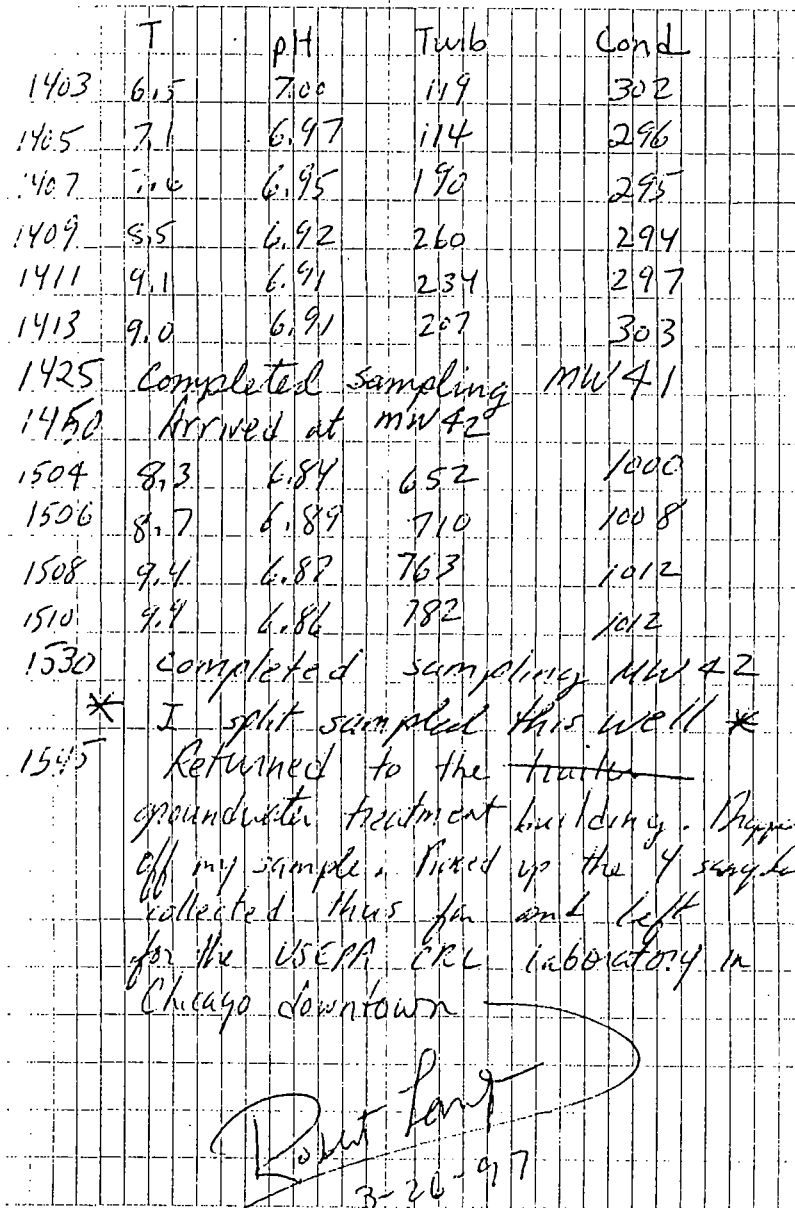 T pH Turb Cond
1403 6.5 7.00 119 302
1405 7.1 6.97 114 296
1407 6.95 190 295
1409 8.5 6.92 260 294
1411 9.1 6.91 234 297
1413 9.0 6.91 207 303
1425 Completed sampling MW 41
1450 Arrived at MW 42
1504 8.3 6.84 652 1000
1506 8.7 6.89 710 1008
1508 9.4 6.87 763 1012
1510 9.4 6.86 782 1012
1530 Completed sampling MW 42
* I split sampled this well *
1545 Returned to the trailer
groundwater treatment building.
off my sample. Picked up the 4
collected thus far and left
for the USEPA CRL laboratory in
Chicago downtown
Robert
3-26-97